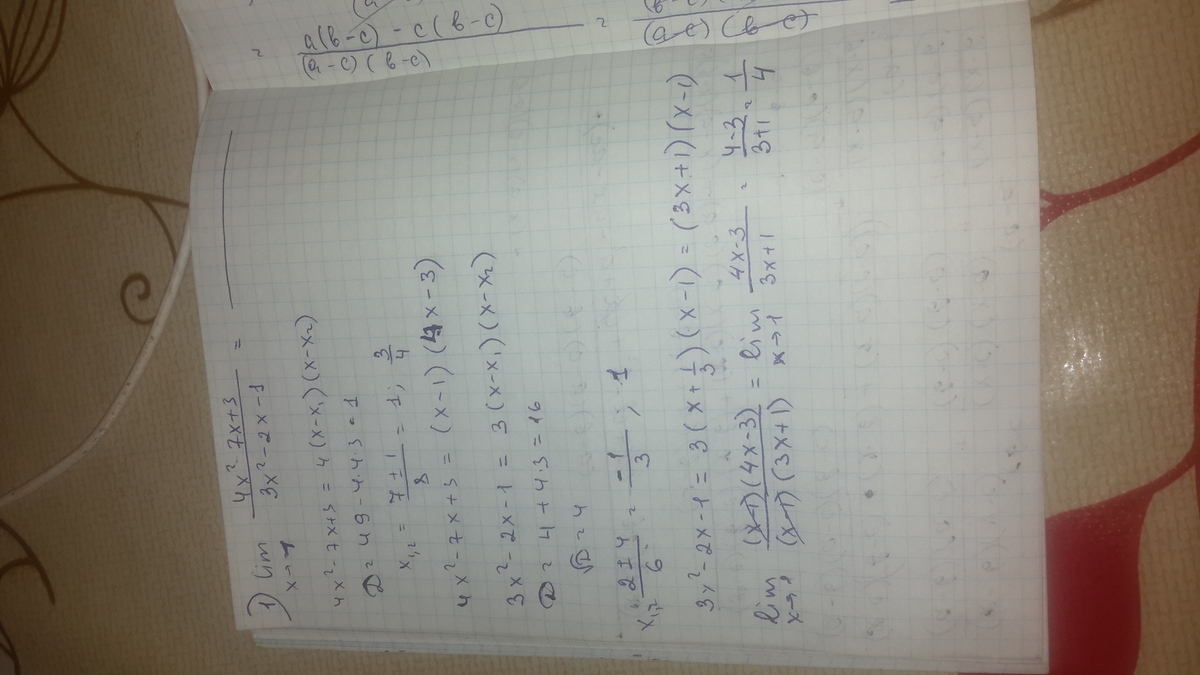 = a(b-c) - c(b-c) / (a-c)(b-c) =
1) lim x→1 4x²-7x+3 / 3x²-2x-1 =
4x²-7x+3 = 4(x-x₁)(x-x₂)
D = 49-4·4·3=1
x₁,₂ = 7±1 / 8 = 1; 3/4
4x²-7x+3 = (x-1)(4x-3)
3x²-2x-1 = 3(x-x₁)(x-x₂)
D = 4+4·3=16
√D = 4
x₁,₂ = 2±4 / 6 = -1/3, 1
3x²-2x-1 = 3(x+1/3)(x-1) = (3x+1)(x-1)
lim x→1 (x-1)(4x-3) / (x-1)(3x+1) = lim x→1 4x-3 / 3x+1 = 4-3 / 3+1 = 1/4